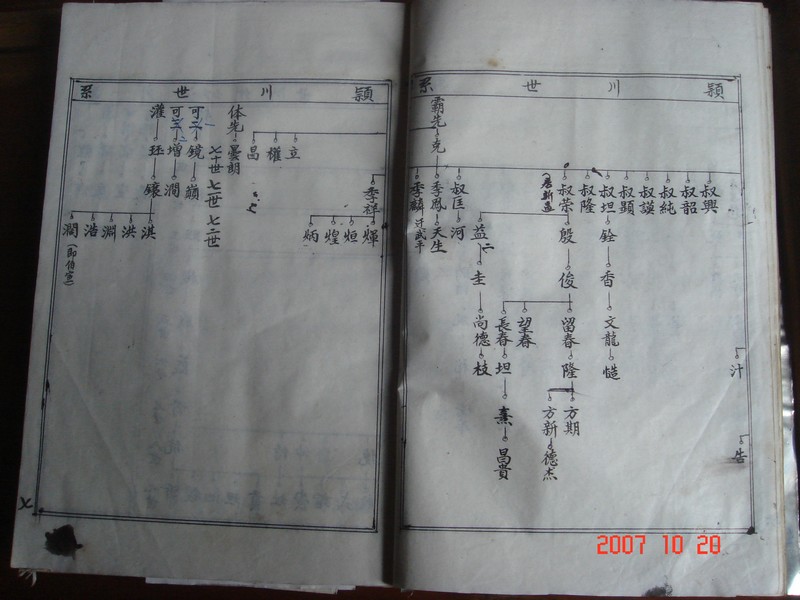 潁川世系
霸先
克
叔興
叔韶
叔純
叔謨
叔顕
叔坦
叔隆
叔榮
叔匡
季鳳
季麟
銓
殷
河
天生
益
俊
圭
文龍
留春
望春
長春
尚德
隆
坦
枝
方期
方新
德杰
昌貴
汁
告
潁川世系
体先
曇朗
可二
可三
灌
立
權
昌
鏡
增
珏
七十世
七一世
七二世
巔
潤
鑲
季祥
輝
烜
煌
炳
淇
洪
淵
浩
澗
2007 10 20